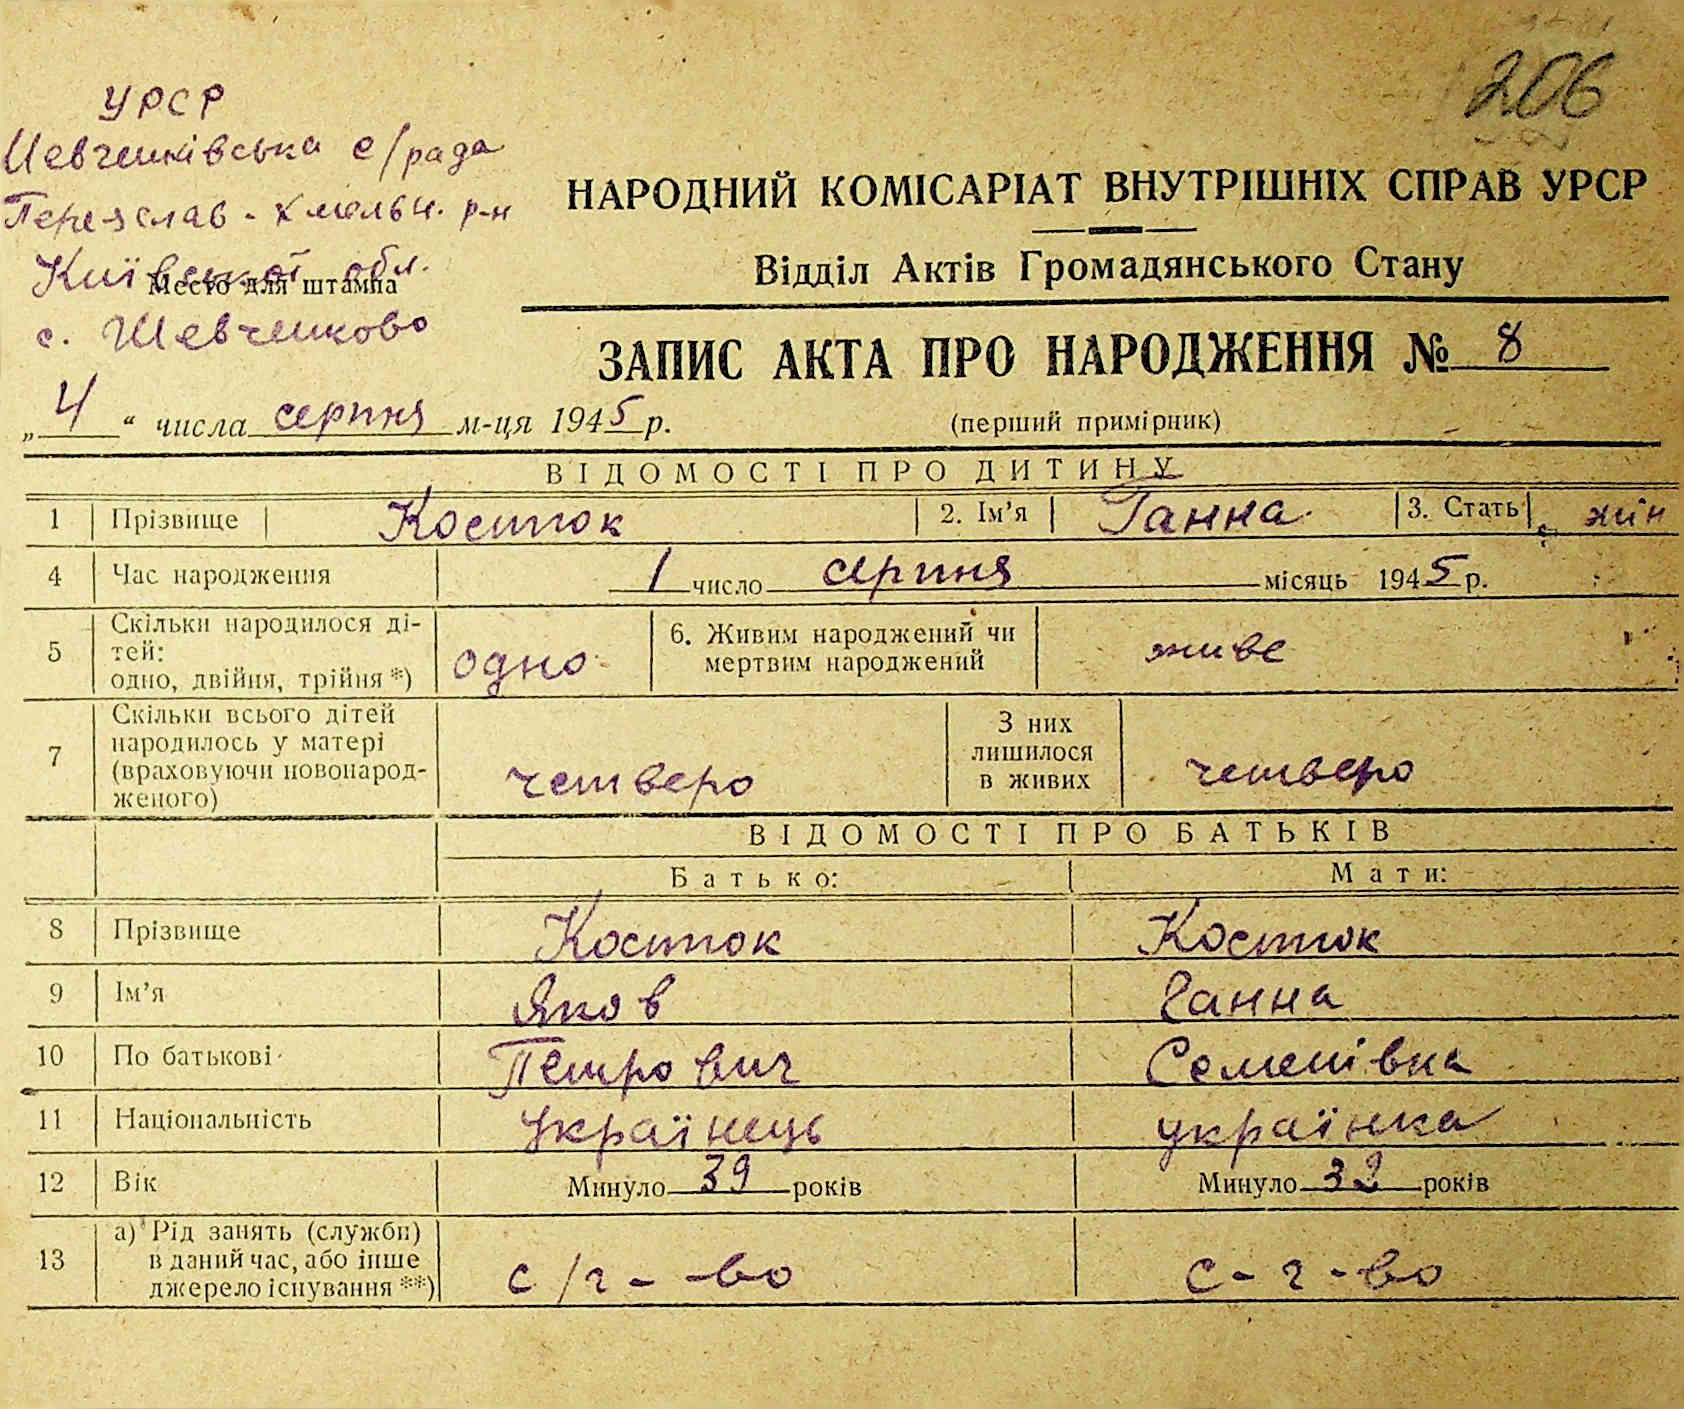 206
УРСР
Шевченківська с/рада
Переяслав-Хмельн. р-н
Київської обл.
Место для штампа
с. Шевченково
НАРОДНИЙ КОМІСАРІАТ ВНУТРІШНІХ СПРАВ УРСР
Відділ Актів Громадянського Стану
ЗАПИС АКТА ПРО НАРОДЖЕННЯ № 8
„4“ числа серпня м-ця 1945 р.
(перший примірник)
ВІДОМОСТІ ПРО ДИТИНУ
1 Прізвище Костюк 2. Ім'я Ганна 3. Стать жін
4 Час народження 1 число серпня місяць 1945 р.
5 Скільки народилося ді-
тей:
одно, двійня, трійня *) одно 6. Живим народжений чи
мертвим народжений живе
7 Скільки всього дітей
народилось у матері
(враховуючи новонарод-
женого) четверо З них
лишилося
в живих четверо
ВІДОМОСТІ ПРО БАТЬКІВ
Батько: Мати:
8 Прізвище Костюк Костюк
9 Ім'я Яков Ганна
10 По батькові Петрович Семенівна
11 Національність українець українка
12 Вік Минуло 39 років Минуло 32 років
13 а) Рід занять (служби)
в даний час, або інше
джерело існування **) с/г-во с-г-во